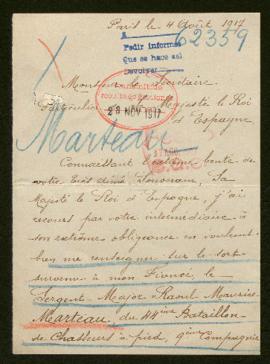 Paris le 4 Août 1917
62359
A
Pedir informes
Que se hace así
Devolver
Monsieur le Secrétaire
Particulier Majesté le Roi
28 NOV 1917
d'Espagne
Marteau
Connaissant l'extrême bonté de
votre Souverain, Sa
Majesté le Roi d'Espagne, j'ai
recours par votre intermédiaire à
son extrême obligeance en voulant
bien me renseigner sur le sort
survenu à mon Fiancé le
Sergent Major Raoul Maurice
Marteau du 44ème Bataillon
de Chasseurs à pied, 9ème Compagnie